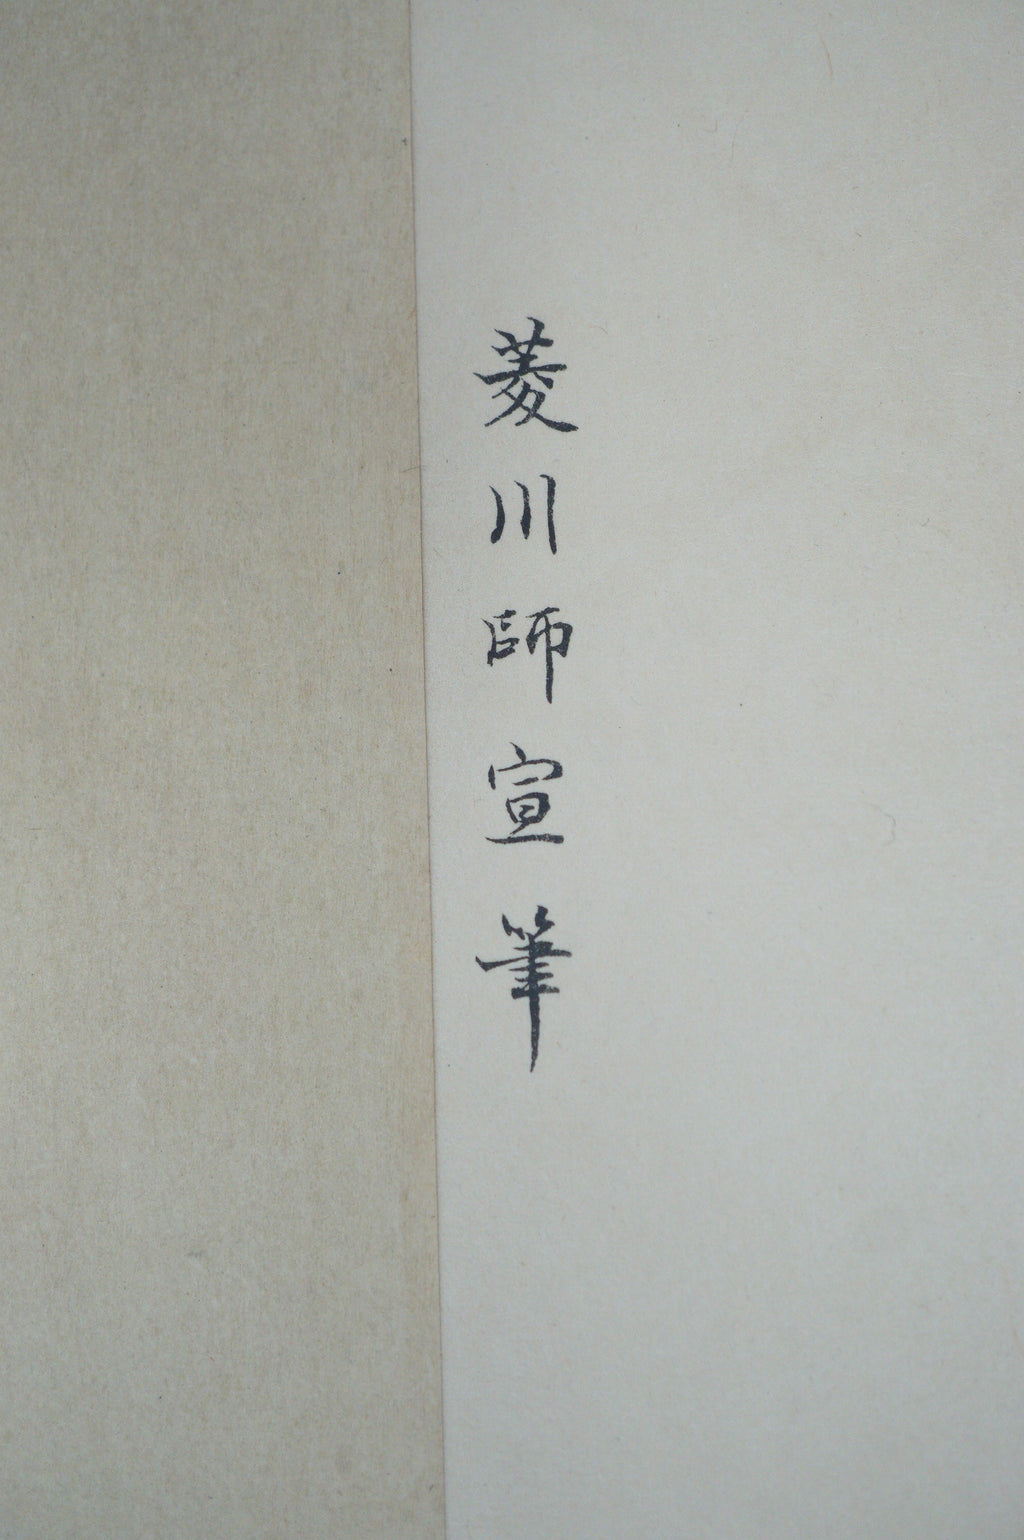 菱川師宣筆